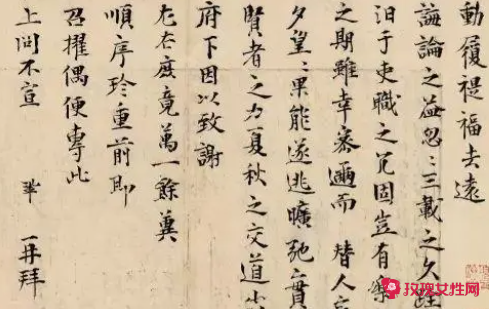 動履禔福去遠
誨論之益忽〻三載之久跧
汩于吏職之冗固豈有樂
之期雖幸密邇而 替人
夕望〻果能遂逃曠弛實
賢者之力夏秋之交道出
府下因以致謝
左右庶竟萬一餘冀
順序珍重前即
召擢偶便專此
上問不宣 鞏 再拜
玫瑰女性网